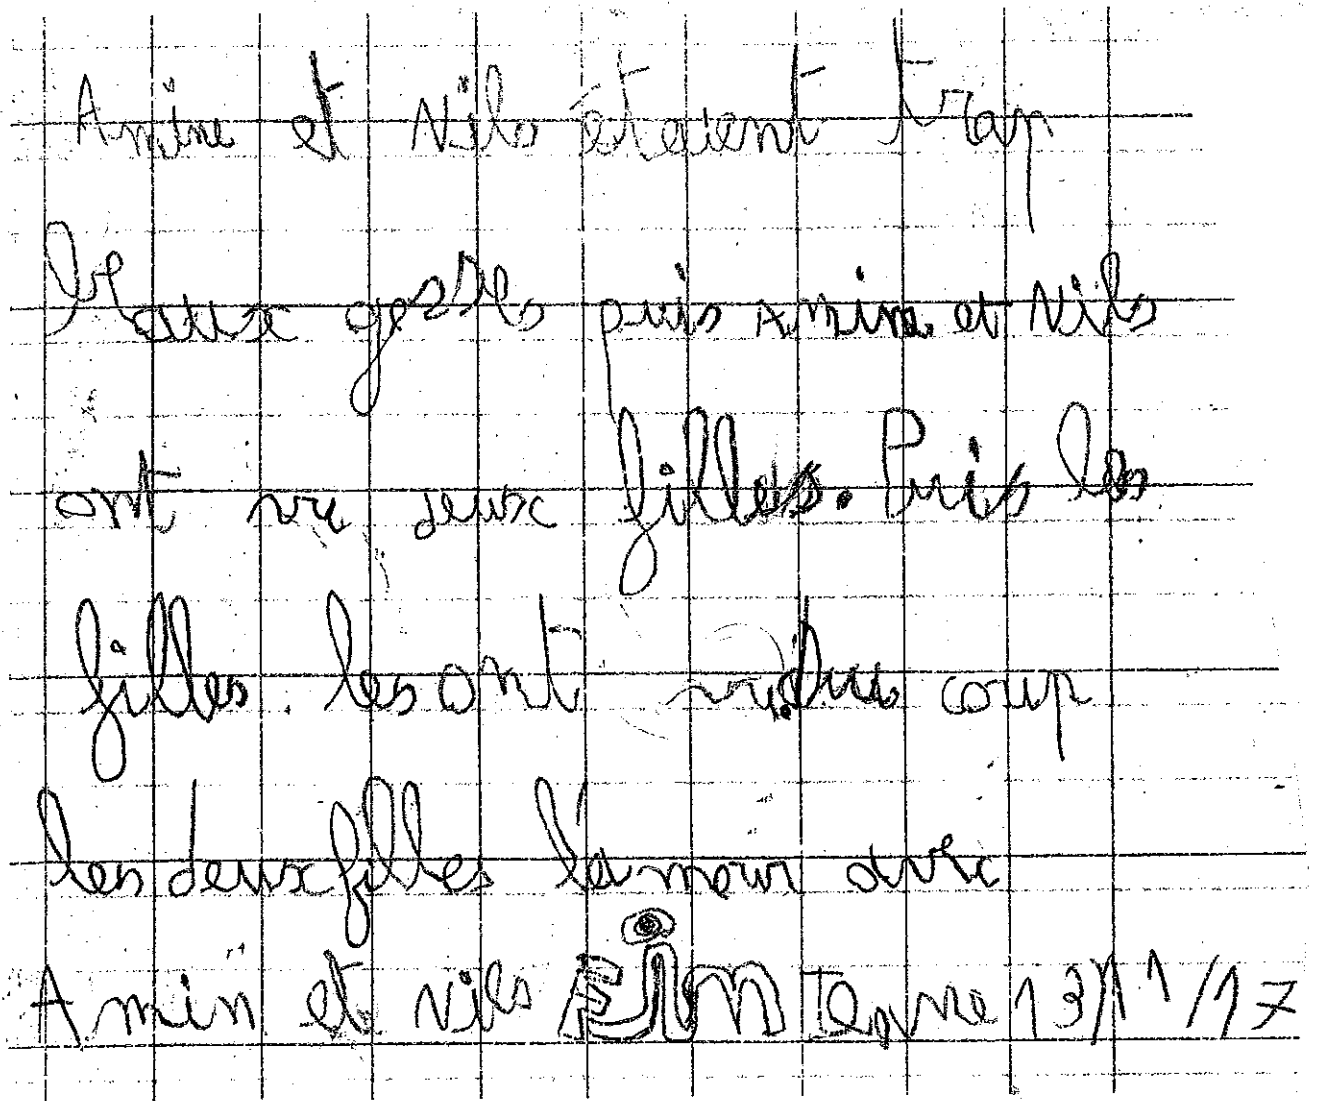 Amine et Nils étaient trop
beaux gosses puis Amine et Nils
ont vu deux filles. Puis les
filles. les ont vu. Dus coup
les deux filles l'amour avec
Amin et Nils Fin 13/11/17